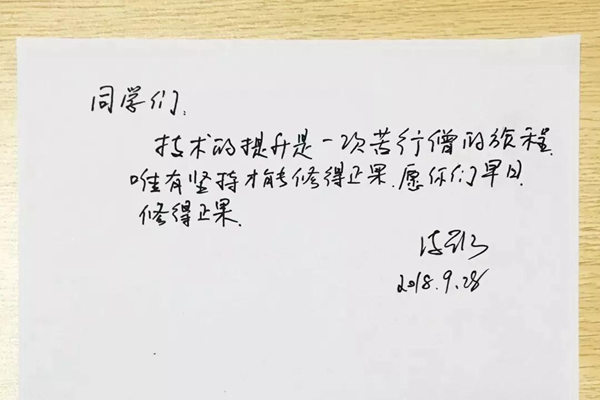 同学们:
技术的提升是一次苦行僧的旅程.
唯有坚持才能修得正果.愿你们早日
修得正果.
2018.9.28